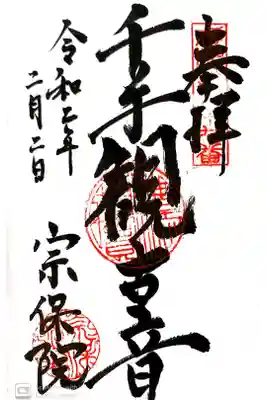 奉拝
千手観世音
令和二年
二月二日
宗保院